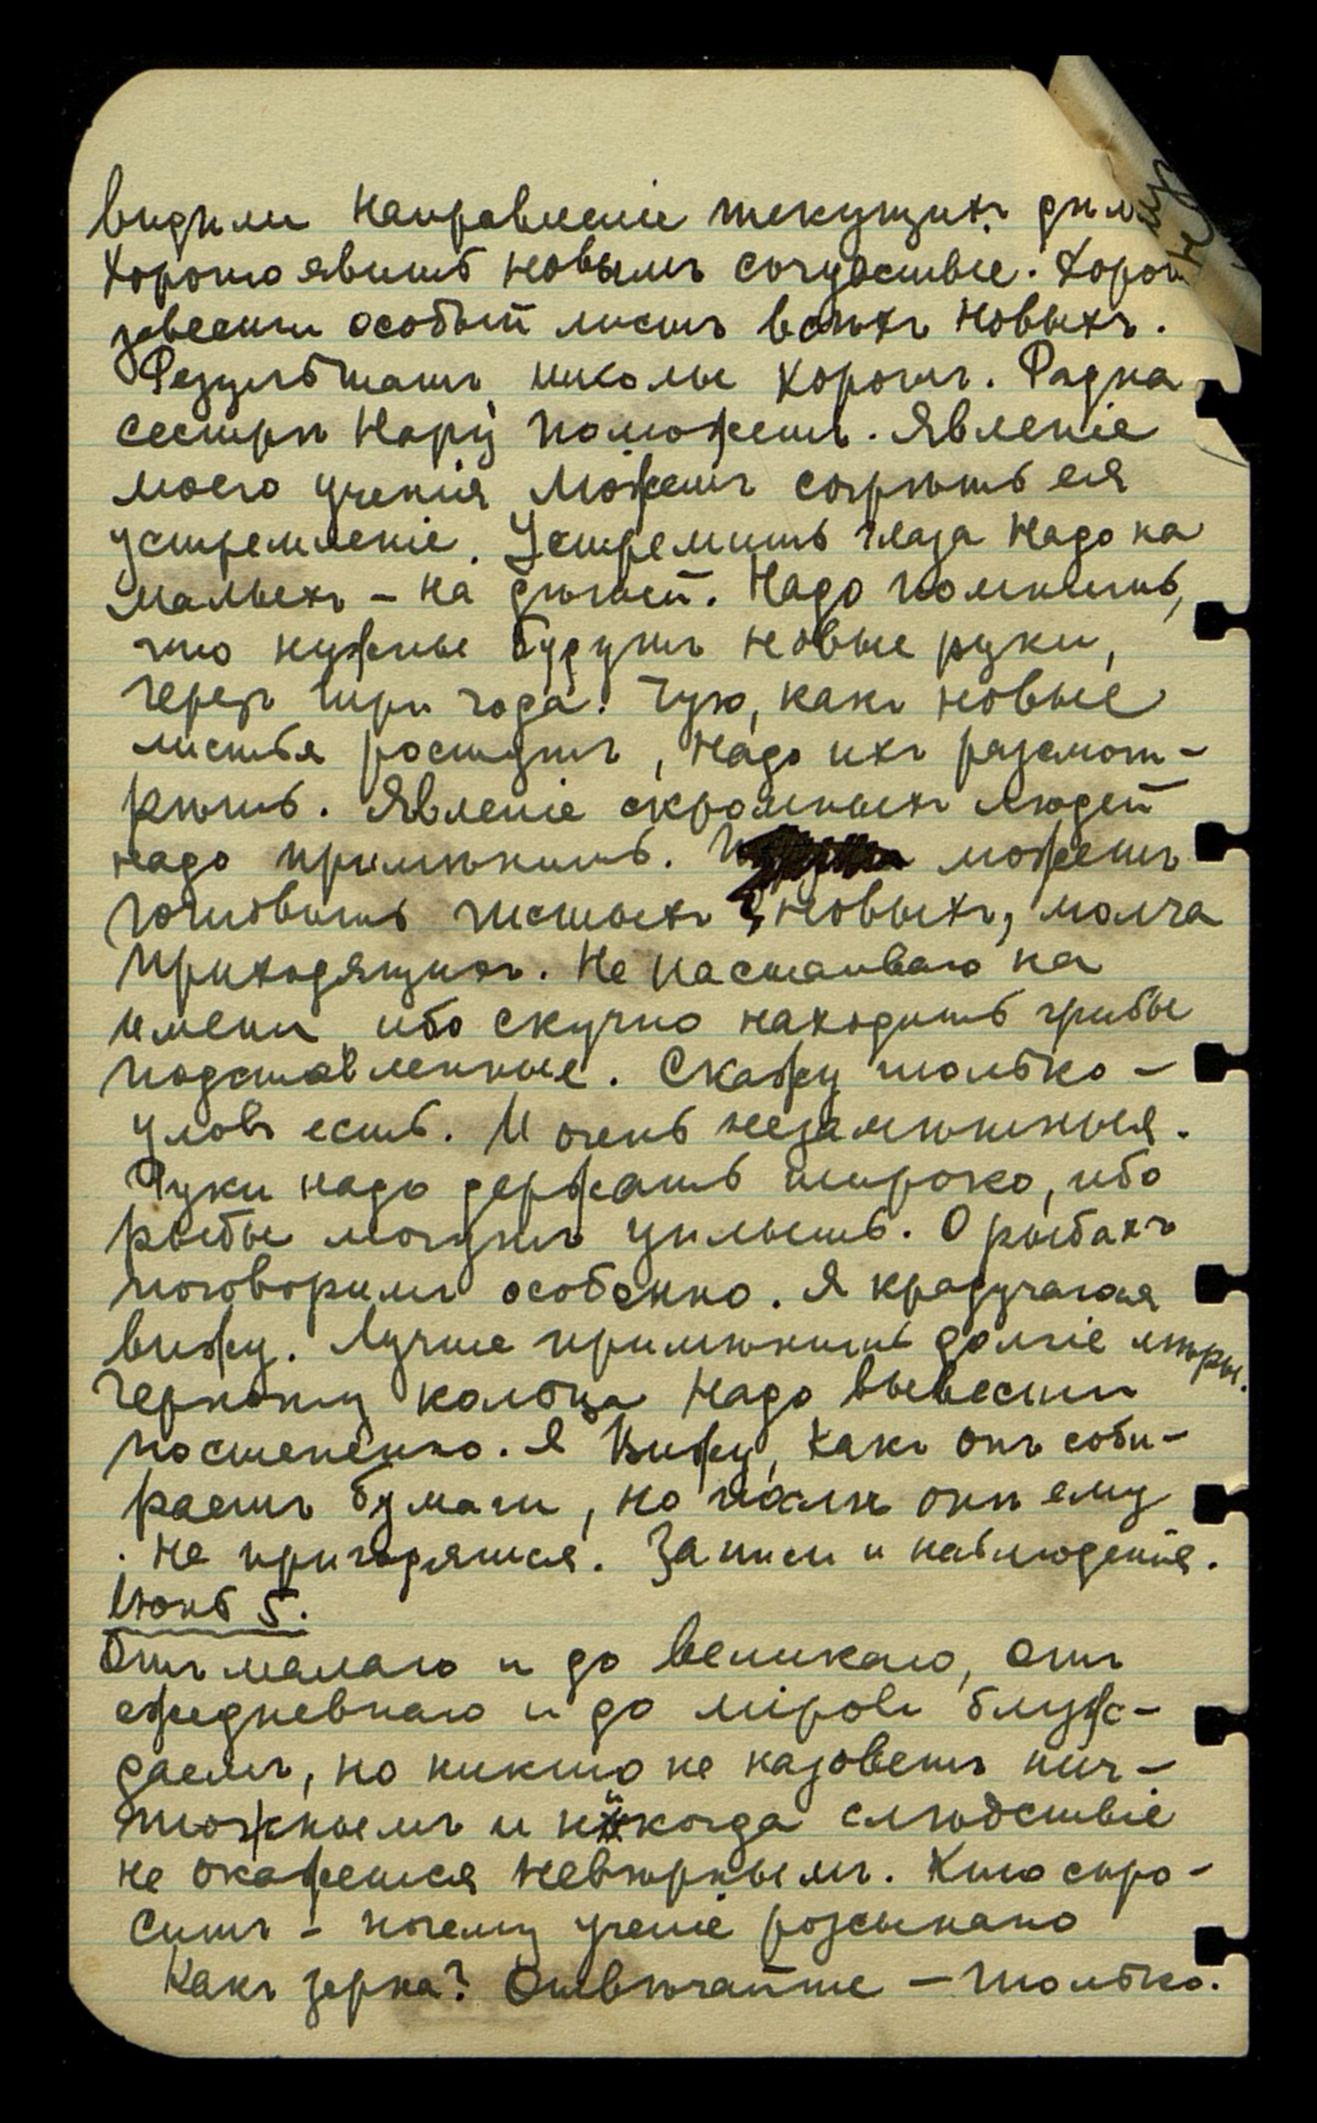 видѣли направленіе текущихъ дѣл
Хорошо явить новымъ сочувствіе. Хорош
завести особый листъ всѣхъ новыхъ.
Результатъ школы хорошъ. Радна
сестрѣ Нару поможетъ. Явленіе
моего ученія можетъ согрѣть ея
устремленіе. Устремить глаза надо на
малыхъ – на дѣтей. Надо помнить,
что нужны будутъ новые руки,
черезъ три года. Чую, какъ новые
листья ростутъ, надо ихъ разсмот-
рѣть. Явленіе скромныхъ людей
надо примѣнить. можетъ
готовить шестыхъ новыхъ, молча
приходящихъ. Не настаиваю на
имени ибо скучно находить грибы
подставленные. Скажу только –
уловъ есть. И очень незамѣтныя.
Руки надо держать широко, ибо
рыбы могутъ уплыть. О рыбахъ
поговоримъ особенно. Я крадучагося
вижу. Лучше примѣнить долгіе мѣры.
Чернаго кольца надо вывести
постепенно. Я вижу, какъ онъ соби-
раетъ бумаги, но послѣ онѣ ему
не пригодятся. Записи и наблюденія.
Іюнь 5.
Отъ малаго и до великаго, отъ
ежедневнаго и до міровъ блуж-
даемъ, но никто не назоветъ нич-
тожнымъ и никогда слѣдствіе
не окажется невѣрнымъ. Кто спро-
ситъ – почему ученіе розсыпано
какъ зерна? Отвѣчайте – только.